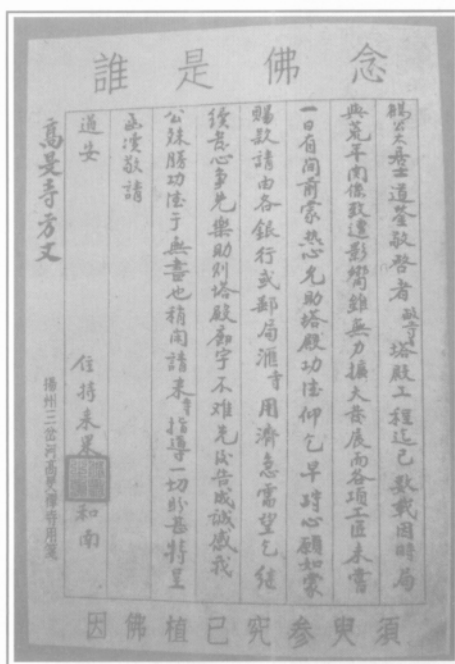 念佛是誰
公大居士道鑒敬啓者敝寺塔殿工程迄已數載因時局
與荒年関係致遭影響雖無力擴大發展而各項工匠未嘗
一日有间前蒙热心允助塔殿功德仰乞早 心願如蒙
賜款請由各銀行或郵局滙寺用濟急需望乞継
續善心争先樂助则塔殿廟宇不难先後告成誠感我
公殊勝功德于無盡也稍闲請来寺指導一切盼甚特呈
函瀆敬請
道安
住持来果和南
高旻寺方丈
揚州三岔河高旻禪寺用箋
須臾参究已植佛因